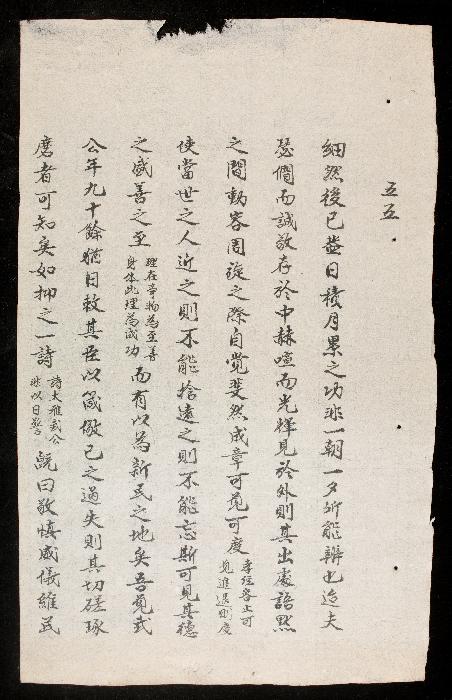 五五
細然後已葢日積月累之功非一朝一夕所能辨也迨夫
瑟僩而誠敬存於中赫喧而光輝見於外則其出處語默
之間動容周旋之際自覺斐然成章可觀可度孝經容止可觀進退可度
使當世之人近之則不能捨遠之則不能忘斯可見其德
之盛善之至理在事物為至善身体此理為成功而有以為新民之地矣吾觀武
公年九十餘猶日敕其臣以箴儆己之過失則其切磋琢
磨者可知矣如抑之一詩詩大雅武公作以自警既曰敬慎威儀維民